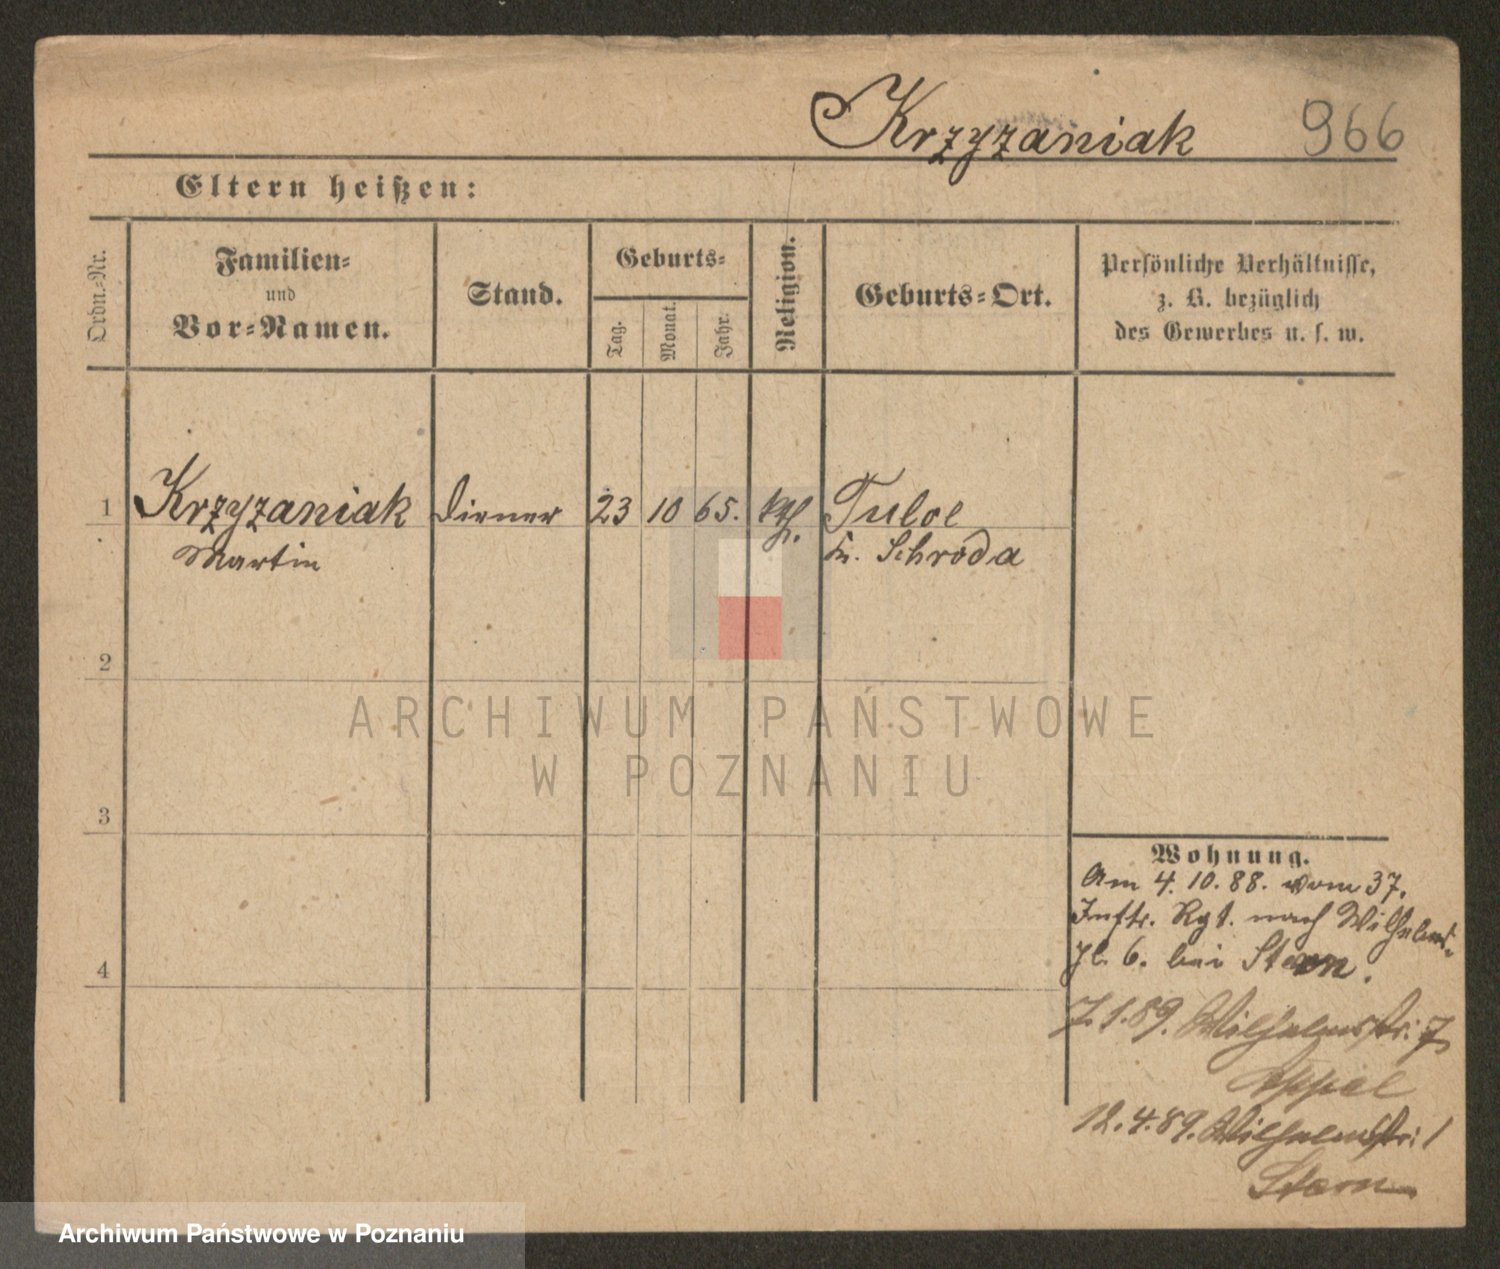 Krzyzaniak 966
Eltern heißen:
Ordn.-Nr.
Familien-
und
Vor-Namen.
Stand.
Geburts-
Tag.
Monat.
Jahr.
Religion.
Geburts-Ort.
Persönliche Verhältnisse,
z. B. bezüglich
des Gewerbes u. s. w.
1 Krzyzaniak Diener 23 10 65. kth. Tulce
Martin Kr. Schroda
2
3
4
Wohnung.
Am 4. 10. 88. vom 37.
Inftr. Rgt. nach Wilhelmst.
pl. 6. bei Stern.
7.1.89. Wilhelmstr: 7
Appel
12.4.89. Wilhelmstr: 1
Stern
ARCHIWUM PAŃSTWOWE
W POZNANIU
Archiwum Państwowe w Poznaniu